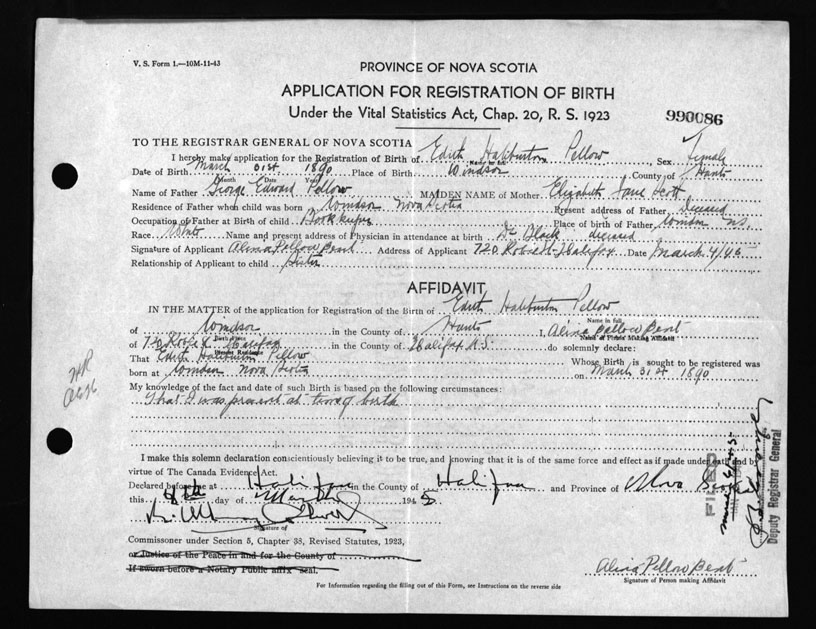 V. S. Form 1.—10M-11-43
PROVINCE OF NOVA SCOTIA
APPLICATION FOR REGISTRATION OF BIRTH
Under the Vital Statistics Act, Chap. 20, R. S. 1923
990086
TO THE REGISTRAR GENERAL OF NOVA SCOTIA
I hereby make application for the Registration of Birth of Edith Haliburton Pellow, Sex Female
Name in full
Date of Birth March 31st 1890 Place of Birth Windsor County of Hants
Month Date Year
Name of Father George Edward Pellow MAIDEN NAME of Mother Elizabeth Jane Scott
Residence of Father when child was born Windsor Nova Scotia Present address of Father, deceased
Occupation of Father at Birth of child Bookkeeper Place of birth of Father, N.S.
Race White Name and present address of Physician in attendance at birth Dr Black deceased
Signature of Applicant Alina Pellow Bent Address of Applicant 720 Robie St Halifax Date March 4/45
Relationship of Applicant to child Sister
AFFIDAVIT
IN THE MATTER of the application for Registration of the Birth of Edith Haliburton Pellow
Name in full
of Windsor in the County of Hants I, Alina Pellow Bent
Birth Place Name of Person Making Affidavit
of 720 Robie St Halifax in the County of Halifax N.S. do solemnly declare:
Present Residence
That Edith Haliburton Pellow Whose Birth is sought to be registered was
born at Windsor Nova Scotia on March 31st 1890
My knowledge of the fact and date of such Birth is based on the following circumstances:
That I was present at time of birth
I make this solemn declaration conscientiously believing it to be true, and knowing that it is of the same force and effect as if made under oath and by
virtue of The Canada Evidence Act.
Declared before me at Halifax in the County of Halifax and Province of Nova Scotia
this day of March 1945
Signature of
Commissioner under Section 5, Chapter 38, Revised Statutes, 1923,
or Justice of the Peace in and for the County of
If sworn before a Notary Public affix seal.
Alina Pellow Bent
Signature of Person making Affidavit
For Information regarding the filling out of this Form, see Instructions on the reverse side
FILED
Deputy Registrar General